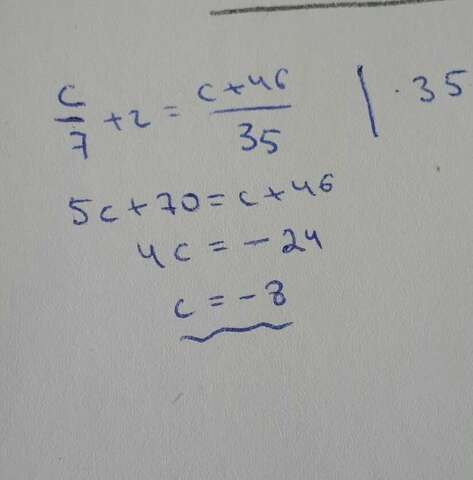 c/7 + 2 = (c + 46)/35 | · 35
5c + 70 = c + 46
4c = -24
c = -8